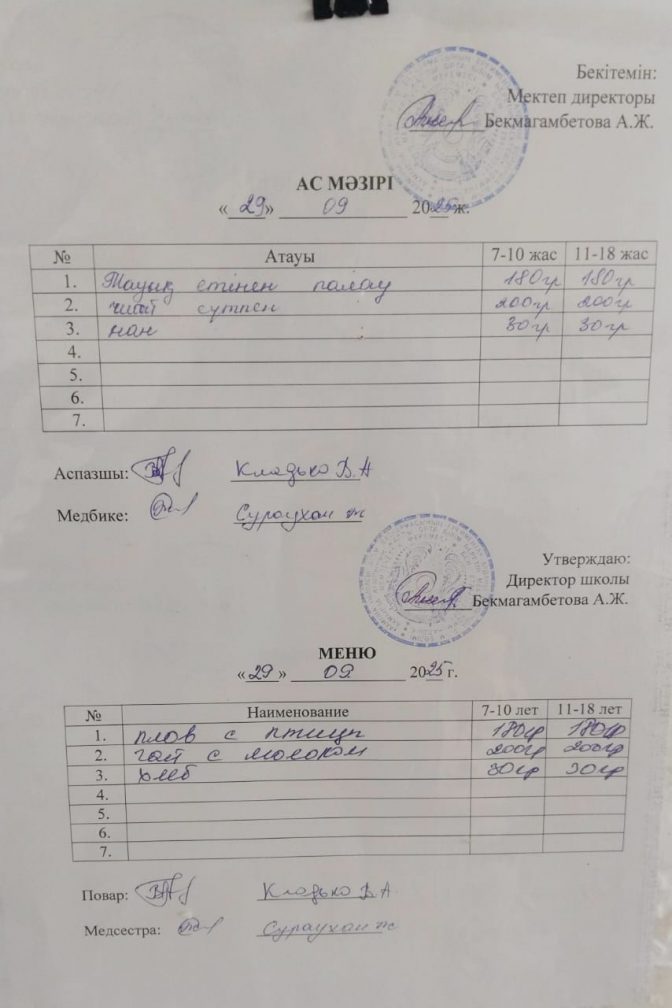 Бекітемін:
Мектеп директоры
Бекмагамбетова А.Ж.
АС МӘЗІРІ
«29» 09 2025 ж.
№ Атауы 7-10 жас 11-18 жас
1. Тауық етінен палау 180гр 180гр
2. чай сүтпен 200гр 200гр
3. нан 30гр 30гр
4.
5.
6.
7.
Аспазшы: Кладько В.А
Медбике: Сураухан Ж
Утверждаю:
Директор школы
Бекмагамбетова А.Ж.
МЕНЮ
«29» 09 2025 г.
№ Наименование 7-10 лет 11-18 лет
1. плов с птицы 180гр 180гр
2. чай с молоком 200гр 200гр
3. хлеб 30гр 30гр
4.
5.
6.
7.
Повар: Кладько В.А.
Медсестра: Сураухан Ж